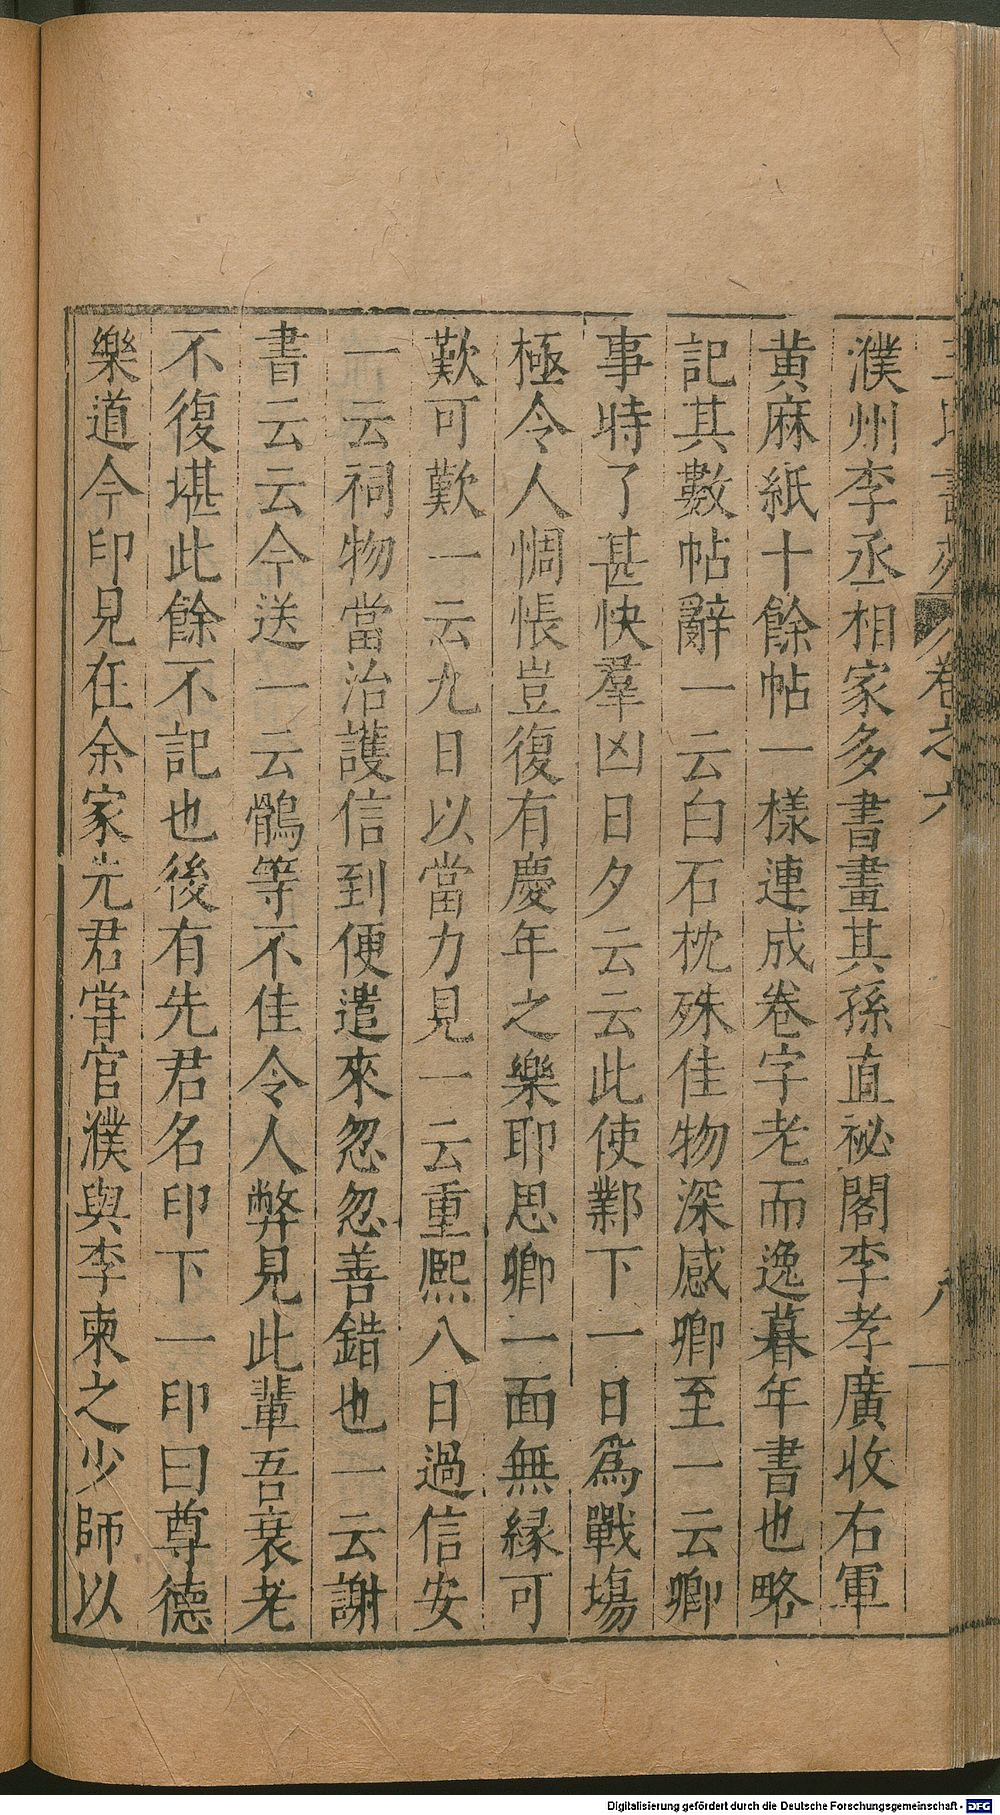 卷之六
濮州李丞相家多書畫其孫直祕閣李孝廣收右軍
黄麻紙十餘帖一樣連成卷字老而逸暮年書也略
記其數帖辭一云白石枕殊佳物深感卿至一云卿
事時了甚快羣凶日夕云云此使鄴下一日爲戰塲
極令人惆悵豈復有慶年之樂耶思卿一面無緣可
歎可歎一云九日以當力見一云重熈八日過信安
一云祠物當治護信到便遣來忽忽善錯也一云謝
書云云今送一云鶻等不佳令人弊見此輩吾衰老
不復堪此餘不記也後有先君名印下一印曰尊德
樂道今印見在余家先君甞官濮與李柬之少師以
Digitalisierung gefördert durch die Deutsche Forschungsgemeinschaft - DFG